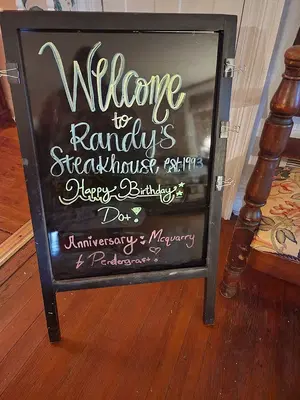 Welcome
to
Randy's
Steakhouse, est. 1993
Happy Birthday
Dot
Anniversary Mcquarry
& Pendergrast